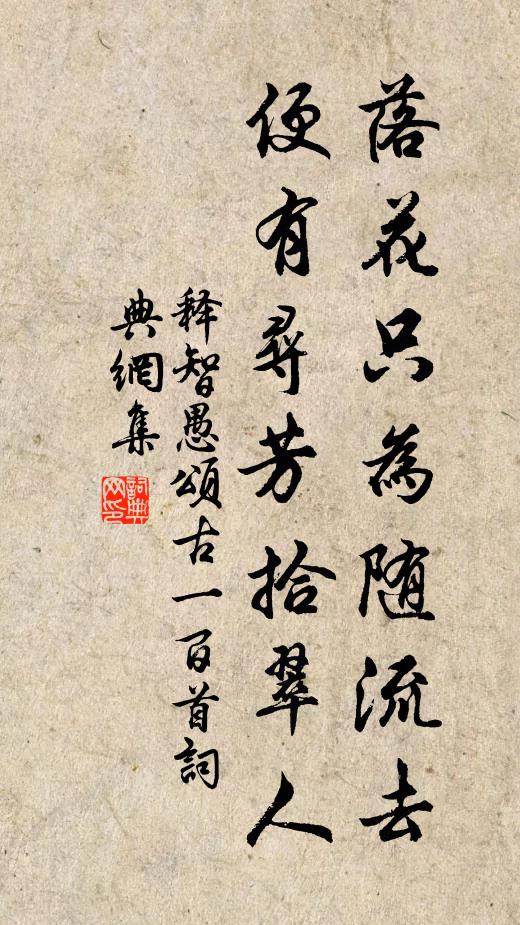 落花只為随流去
便有尋芳拾翠人
释智愚頌古一百首詞
典網集
詞典
网印